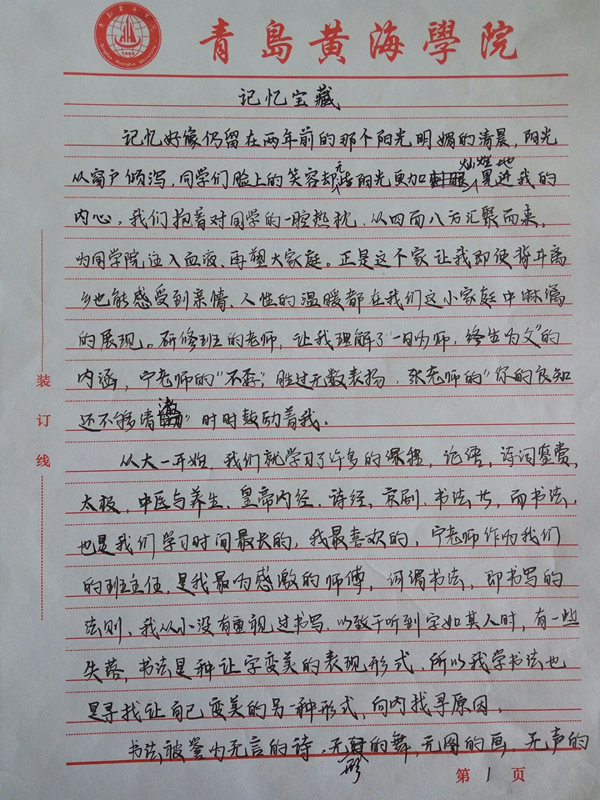 青島黄海學院
记忆宝藏
记忆好像仍留在两年前的那个阳光明媚的清晨，阳光
从窗户倾泻，同学们脸上的笑容却比阳光更加灿烂地晃进我的
内心，我们抱着对同学的一腔热忱，从四面八方汇聚而来，
为同学院注入血液，再塑大家庭。正是这个家让我即使背井离
乡也能感受到亲情、人性的温暖都在我们这小家庭中淋漓
的展现。研修班的老师，让我理解了“一日为师，终生为父”的
内涵，宁老师的“不孬”，胜过无数表扬，张老师的“你的良知
还不够清澈”时时鼓动着我。
从大一开始，我们就学习了许多的课程，论语，诗词鉴赏，
太极，中医与养生，皇帝内经，诗经，京剧，书法等，而书法，
也是我们学习时间最长的，我最喜欢的，宁老师作为我们
的班主任，是我最为感激的师傅，何谓书法，即书写的
法则，我从小没有重视过书写，以致于听到字如其人时，有一些
失落，书法是种让字变美的表现形式，所以我学书法也
是寻找让自己变美的另一种形式，向内找寻原因。
书法被誉为无言的诗，无形的舞，无图的画，无声的
装订线
第1页